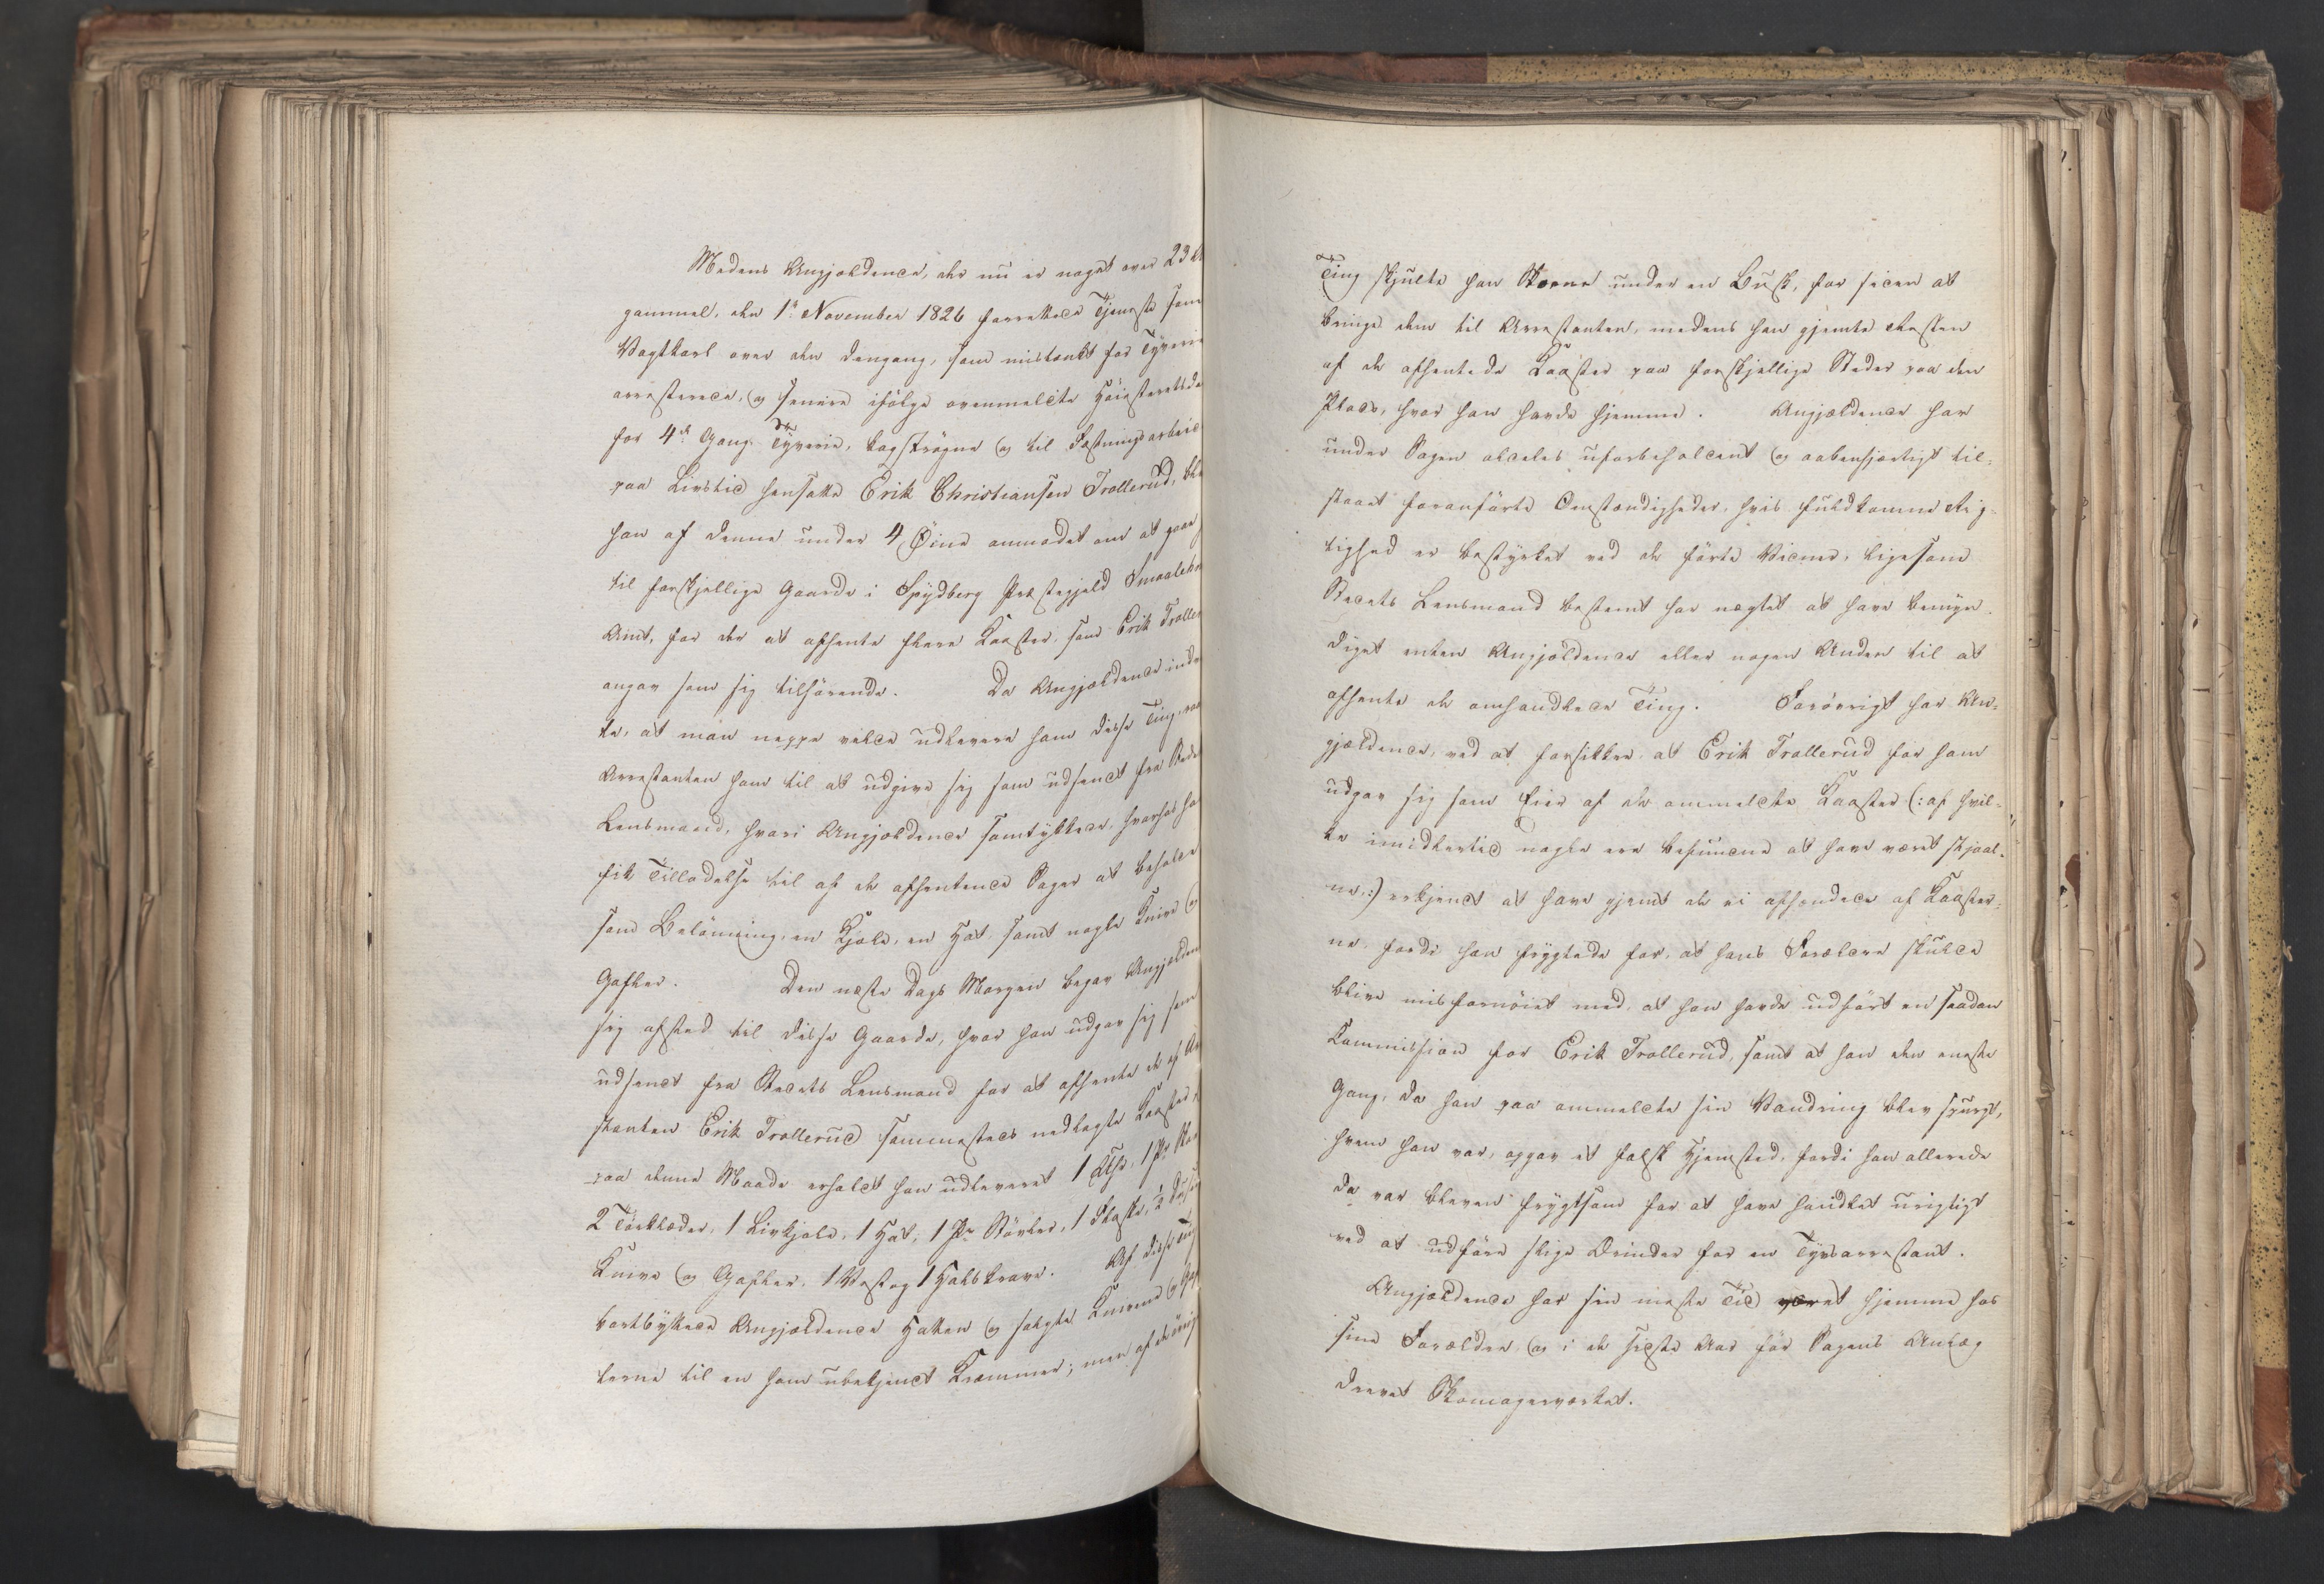 Medens Angjældende, der nu er noget over 23 A
gammel, den 1ste November 1826 forrettede Tjeneste som
Vagtkarl over den dengang, som mistænkt for Tyverie
arresterede, og senere ifølge ovenmeldte Høiesteretsdo
for 4de Gang Tyverie, kagstrøgne og til Fæstningsarbeid
paa Livstid hensatte Erik Christiansen Trollerud, ble
han af denne under 4 Øine anmodet om at gaae
til forskjellige Gaarde i Spydberg Præstegjeld Smaalehn
Amt, for der at afhente flere Kaaster, som Erik Troller
angav som sig tilhørende. Da Angjældende ind
te, at man neppe vilde udlevere ham disse Ting,
Arrestanten ham til at udgive sig som udsendt fra Sted
Lensmand, hvori Angjældende samtykkede, hvorhos ha
fik Tilladelse til af de afhentende Sager at beholde
som Belønning, en Kjole, en Hat, samt nogle Knive og
Gafler. Den næste Dags Morgen begav Angjelden
sig afsted til disse Gaarde, hvor han udgav sig som
udsendt fra Stedets Lensmand for at afhente de af Ar
stanten Erik Trollerud sammesteds nedlagte Kaaster,
paa denne Maade erholdt han udleveret 1 Uhr, 1 Pr Sko
2 Tørklæder, 1 Livkjole, 1 Hat, 1 Pr Støvler, 1 Flaske, ½ Dusin
Knive og Gafler, 1 Vest og 1 Halskrave. Af disse Ting
bortbyttede Angjældende Hatten og solgte Knivene og Gaf
lerne til en ham ubekjendt Kræmmer; men af de øvrig
Ting skjulte han Skoene under en Busk, for siden at
bringe dem til Arrestanten, medens han gjemte Resten
af de afhentede Kaaster paa forskjellige Steder paa den
Plads, hvor han havde hjemme. Angjældende har
under Sagen aldeles uforbeholdent og aabenhjertigt til-
staaet foranførte Omstændigheder, hvis fuldkomne Rig-
tighed er bestyrket ved de førte Vidner, ligesom
Stedets Lensmand bestemt har nægtet at have bemyn-
diget enten Angjældende eller nogen Anden til at
afhente de omhandlede Ting. Forøvrigt har An-
gjældende, ved at forsikkre, at Erik Trollerud for ham
udgav sig som Eier af de ommeldte Kaaster (: af hvil-
ke imidlertid nogle ere befundne at have været stjaal-
ne,:) erkjendt at have gjemt de ei afhændede af Kaaster-
ne, fordi han frygtede for, at hans Forældre skulde
blive misfornøiet med, at han havde udført en saadan
Kommission for Erik Trollerud, samt at han den eneste
Gang, da han paa ommeldte sin Vandring blev spurgt,
hvem han var, opgav et falsk Hjemsted, fordi han allerede
da var bleven frygtsom for at have handlet urigtigt
ved at udføre slige Ærinder for en Tyvsarrestant.
Angjældende har sin meste Tid været hjemme hos
sine Forældre, og i de sidste Aar før Sagens Anlæg
drevet Skomagerværket.